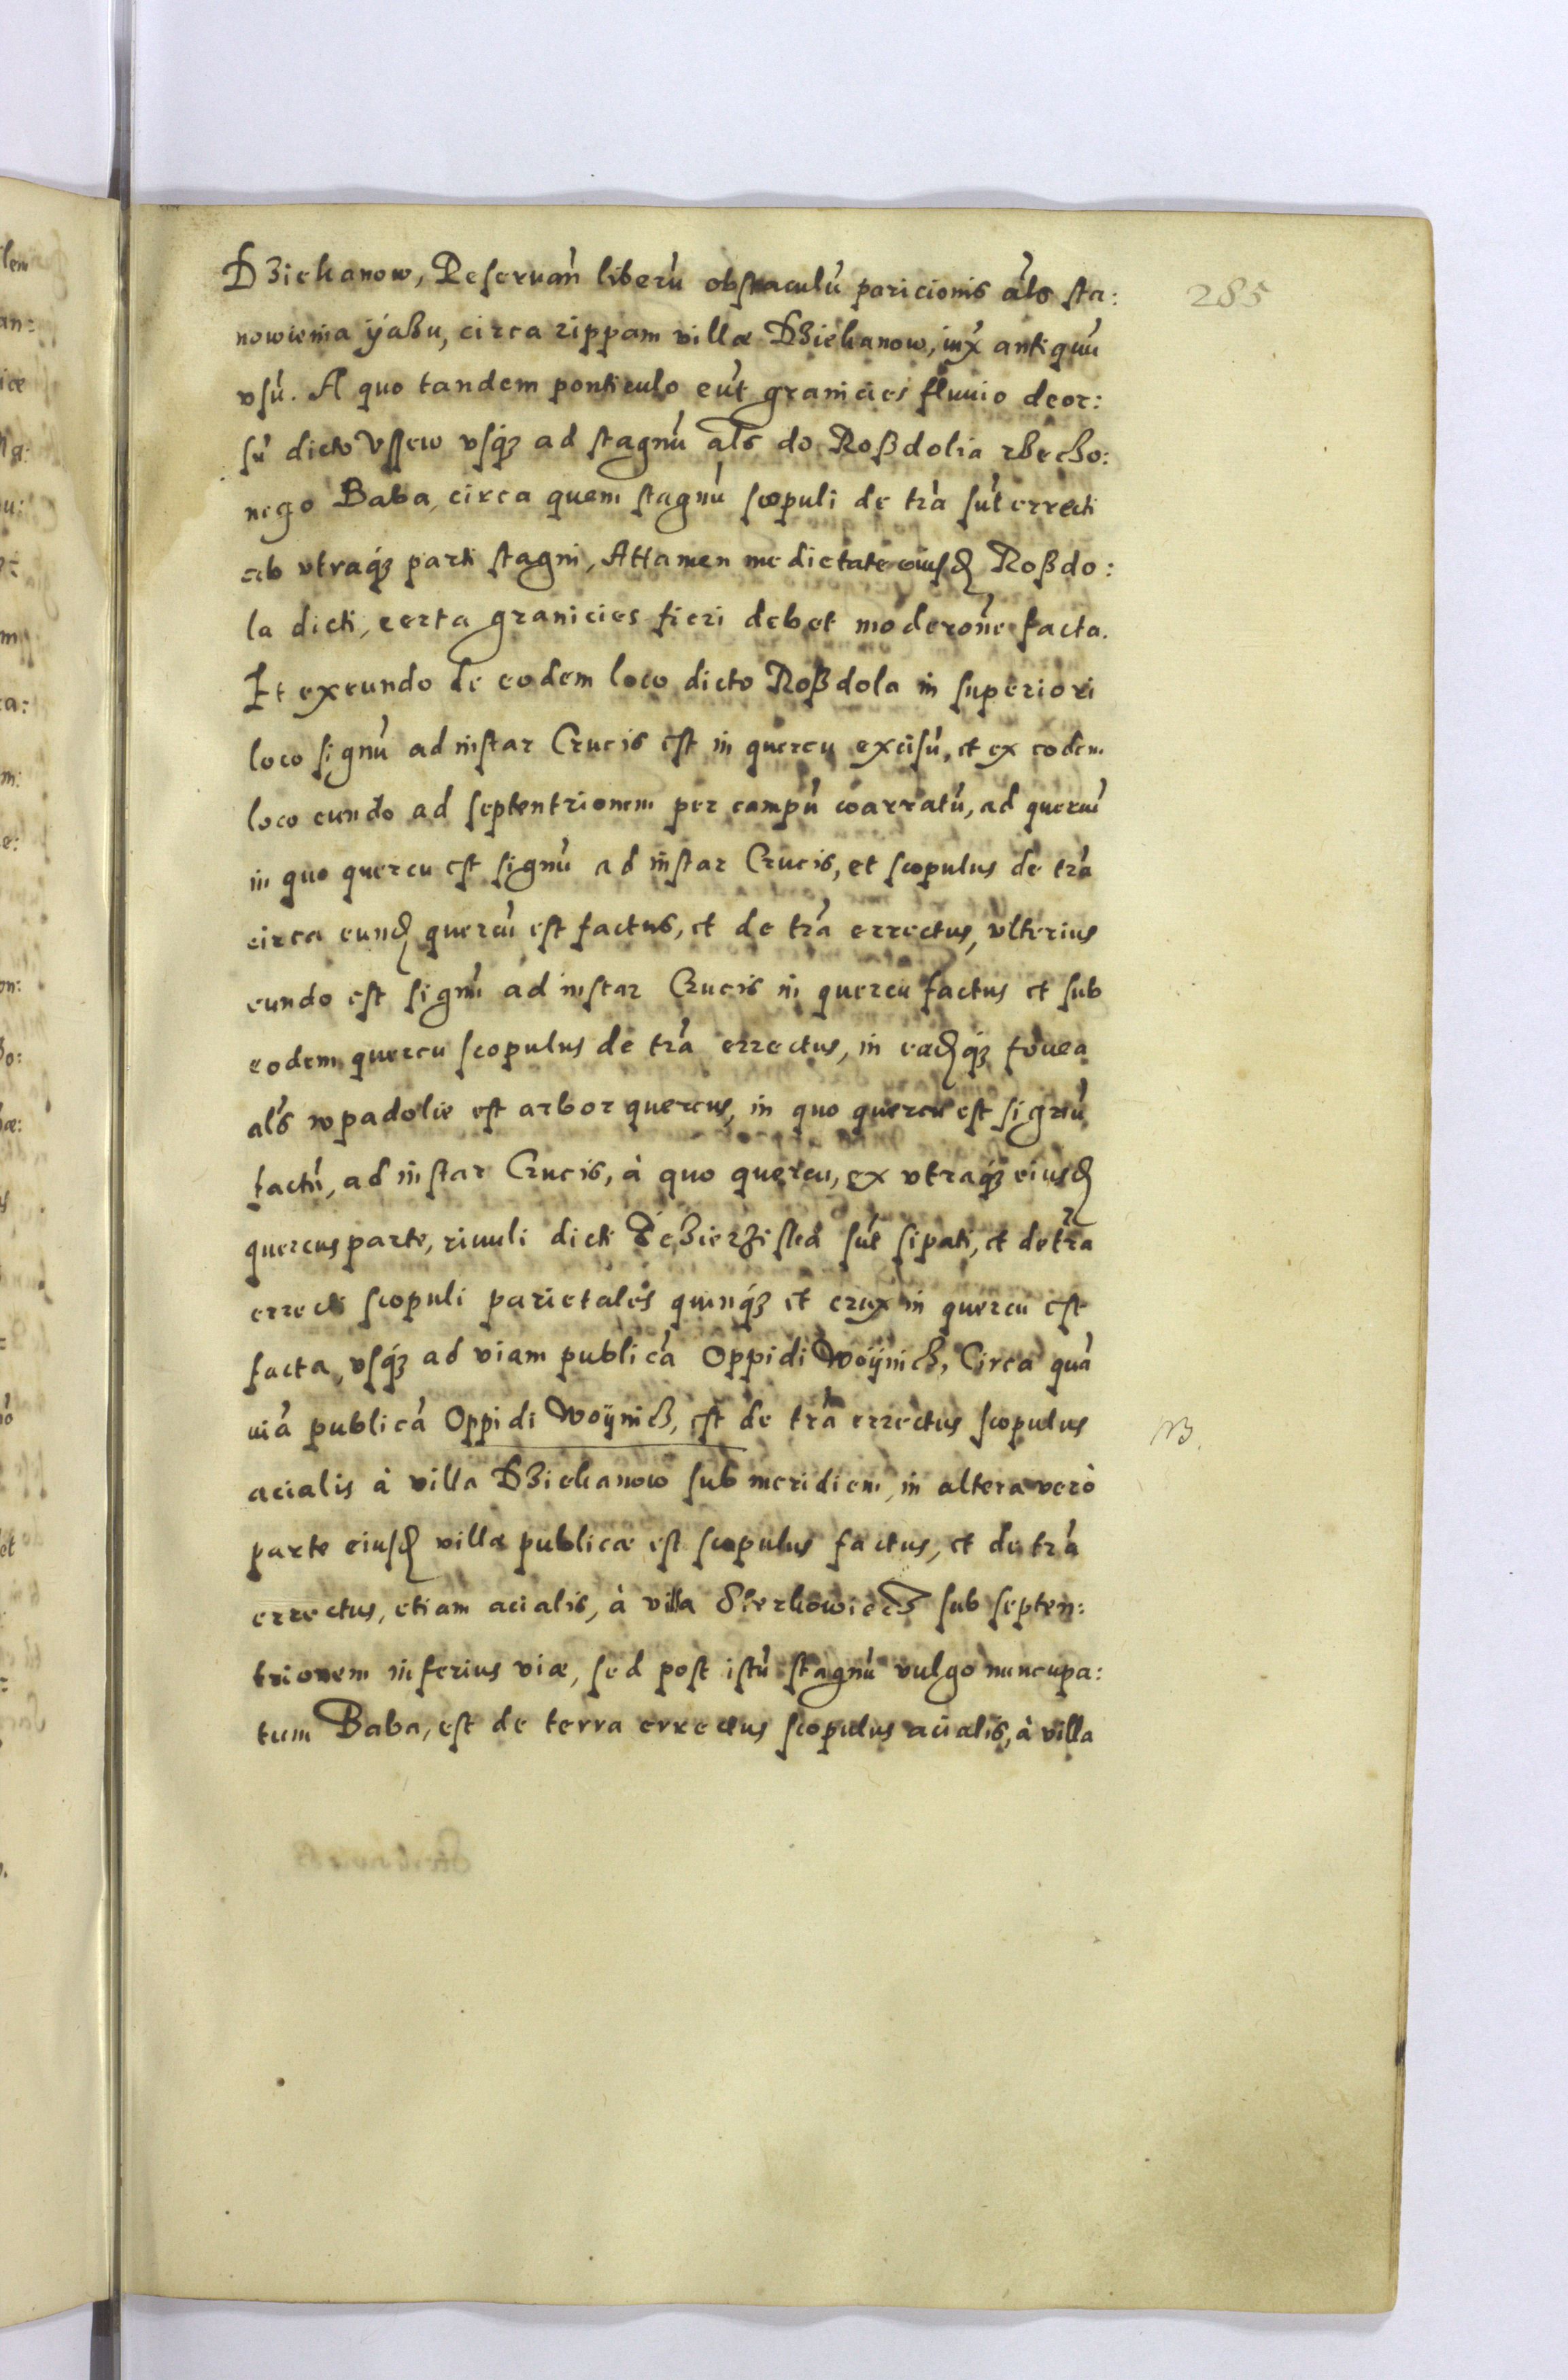 285
Dziekanow, Reseruan̄ liberū obstaculū paricionis al̄s sta:
nowienia ÿazu, circa rippam villæ Dziekanow, iux̄ antiquū
vsū. A quo tandem ponticulo eūt granicies fluuio deor:
sū dicto Vssew vsq́ꝫ ad stagnū al̄s do Roßdolia rzeczo:
nego Baba, circa quem stagnū scopuli de tr̄a sūt errecti
ab vtraq́ꝫ parti stagni, Attamen medietate eiusd̄ Roßdo:
la dicti, certa granicies fieri debet moderōne facta.
Et exeundo de eodem loco dicto Roßdola in superiori
loco signū ad instar Crucis est in quercu excisū, et ex eodem
loco eundo ad septentrionem per campū coarratū, ad quercū
in quo quercu est signū ad instar Crucis, et scopulus de tr̄a
circa eund̄ quercū est factus, et de tr̄a errectus, vlterius
eundo est signū ad instar Crucis in quercu factus et sub
eodem quercu scopulus de tr̄a errectus, in ead̄q́ꝫ fouea
al̄s w padolie est arbor quercus, in quo quercu est signū
factū, ad instar Crucis, à quo quercu, ex vtraq́ꝫ eiusd̄
quercus parte, riuuli dicti sūt sipati, et de tr̄a
errecti scopuli parietales quinq́ꝫ et crux in quercu est
facta, vsq́ꝫ ad viam publicā Oppidi Woÿnicz, Circa quā
uiā publicā Oppidi Woÿnicz, est de tr̄a errectus scopulus
NB.
acialis à villa Dziekanow sub meridiem, in altera verò
parte eiusd̄ villæ publicæ est scopulus factus, et de tr̄a
errectus, etiam acialis, à villa Sterkowiecz sub septen:
trionem inferius viæ, sed post istū stagnū vulgo nuncupa:
tum Baba, est de terra errectus scopulus acialis, à villa